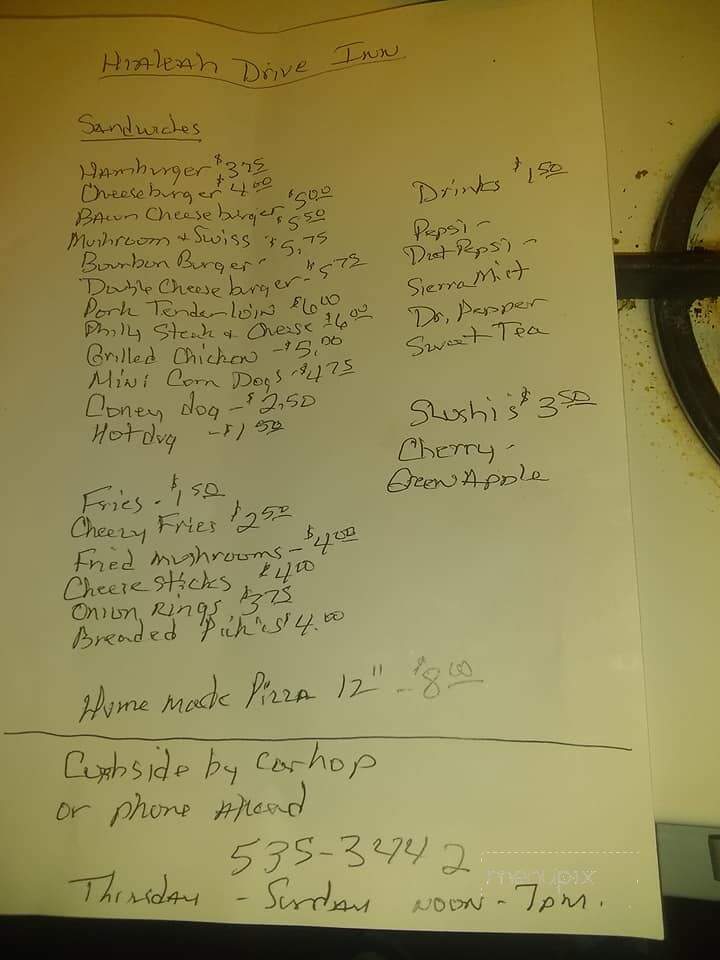 Hialeah Drive Inn
Sandwiches
Hamburger $3.75
Cheeseburger $4.00
Bacon Cheeseburger $5.00
Mushroom & Swiss $5.50
Bourbon Burger - $5.75
Double Cheeseburger - $5.75
Pork Tenderloin $6.00
Philly Steak & Cheese - $6.00
Grilled Chicken - $5.00
Mini Corn Dogs - $4.75
Coney dog - $2.50
Hotdog - $1.50
Drinks $1.50
Pepsi -
Diet Pepsi -
Sierra Mist
Dr. Pepper
Sweet Tea
Slushi's $3.50
Cherry -
Green Apple
Fries - $1.50
Cheezy Fries $2.50
Fried mushrooms - $4.00
Cheese sticks $4.00
Onion Rings $3.75
Breaded $4.00
Home made Pizza 12" - $8.00
Curbside by carhop
or phone Ahead
535-3242
Thursday - Sunday noon - 7pm.
menupix